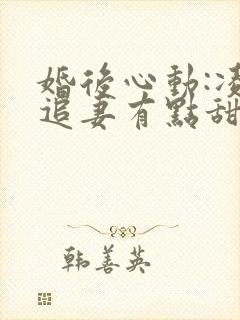 婚後心動:凌
追妻有點甜
韩善英